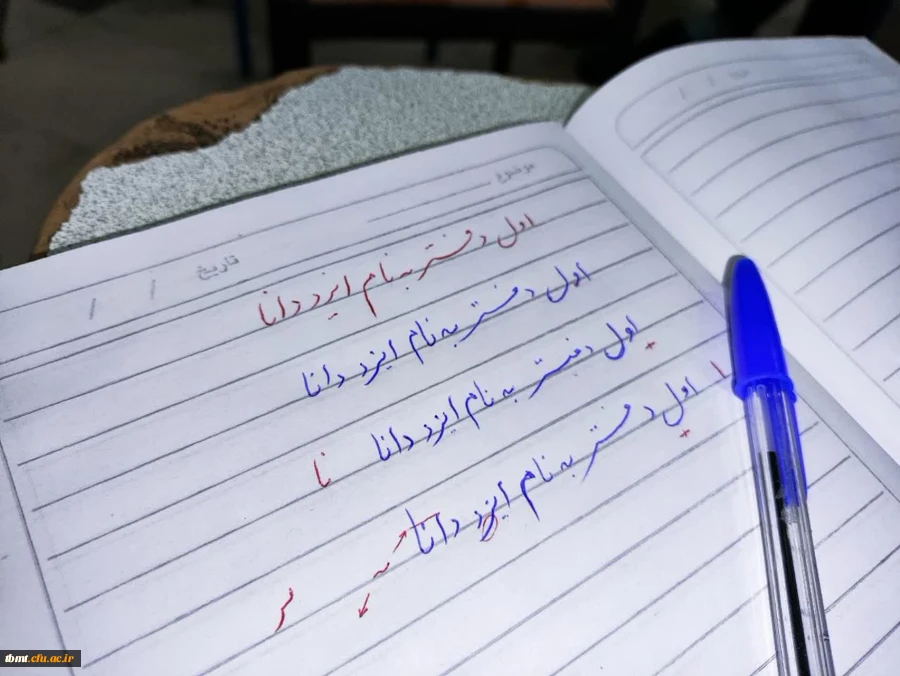 موضوع
تاریخ / /
اول دفتر به نام ایزد دانا
اول دفتر به نام ایزد دانا
اول دفتر به نام ایزد دانا
نا
ا
اول دفتر به نام ایزد دانا
tbmt.cfu.ac.ir